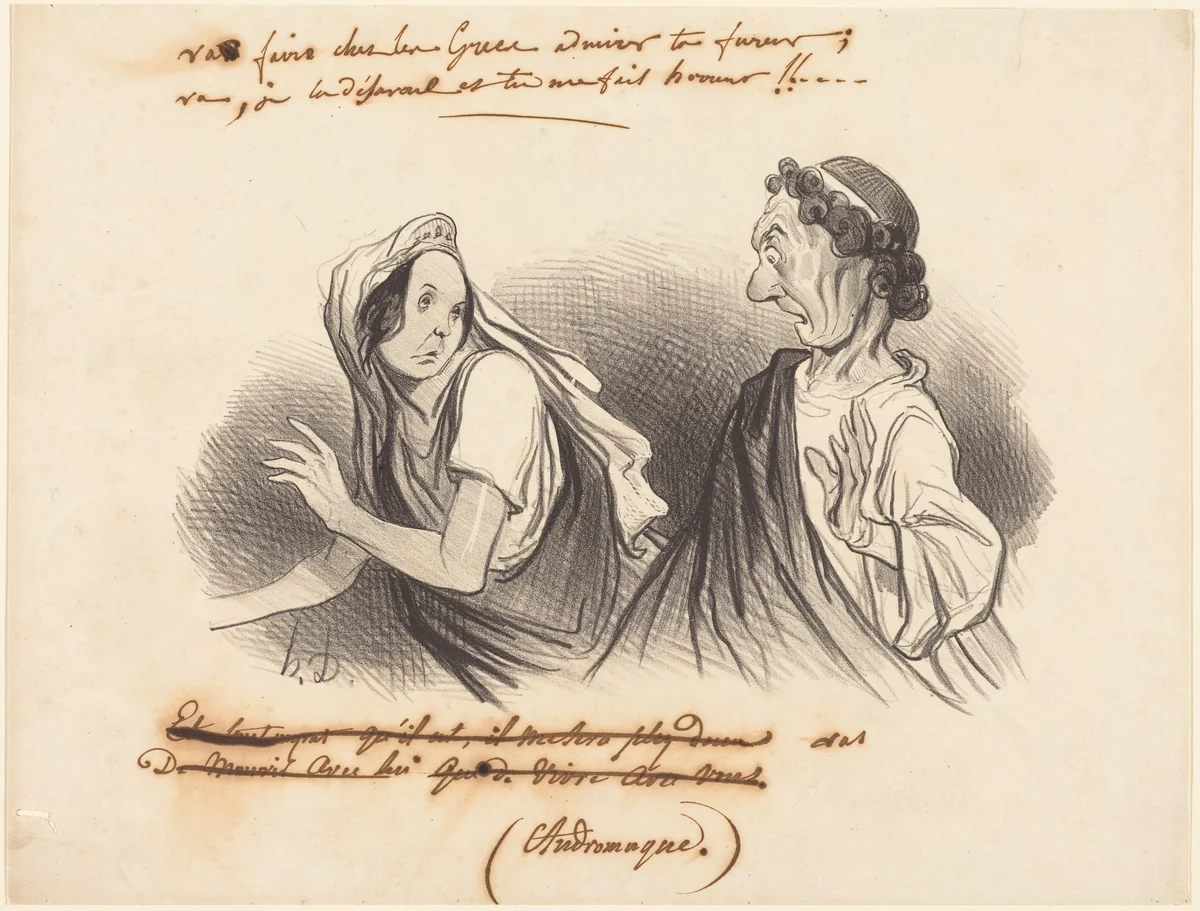 va faire chez les Grecs admirer ta fureur ;
va, je la désavoue et tu me fait horreur !!....
h. D.
Et tout ingrat qu'il est, il me sera plus doux vas
De Mourir avec lui que de vivre avec vous.
(Andromaque.)